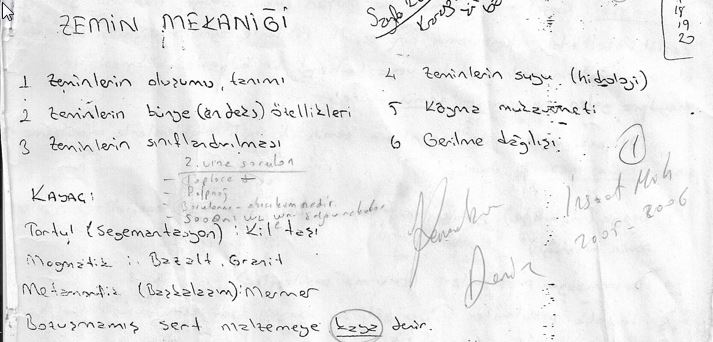 ZEMİN MEKANİĞİ
18
19
20
1 Zeminlerin oluşumu, tanımı
2 Zeminlerin bünye (endeks) özellikleri
3 Zeminlerin sınıflandırılması
4 Zeminlerin suyu (hidroloji)
5 Kayma mukavemeti
6 Gerilme dağılışı
1
2. vize soruları
KAYAÇ:
Tortul (Segemantasyon) : Kil taşı
Magmatik : Bazalt, Granit
Metamorfik (Başkalaşım): Mermer
Bozuşmamış sert malzemeye kaya denir.
İnşaat Müh
2005-2006
Deniz